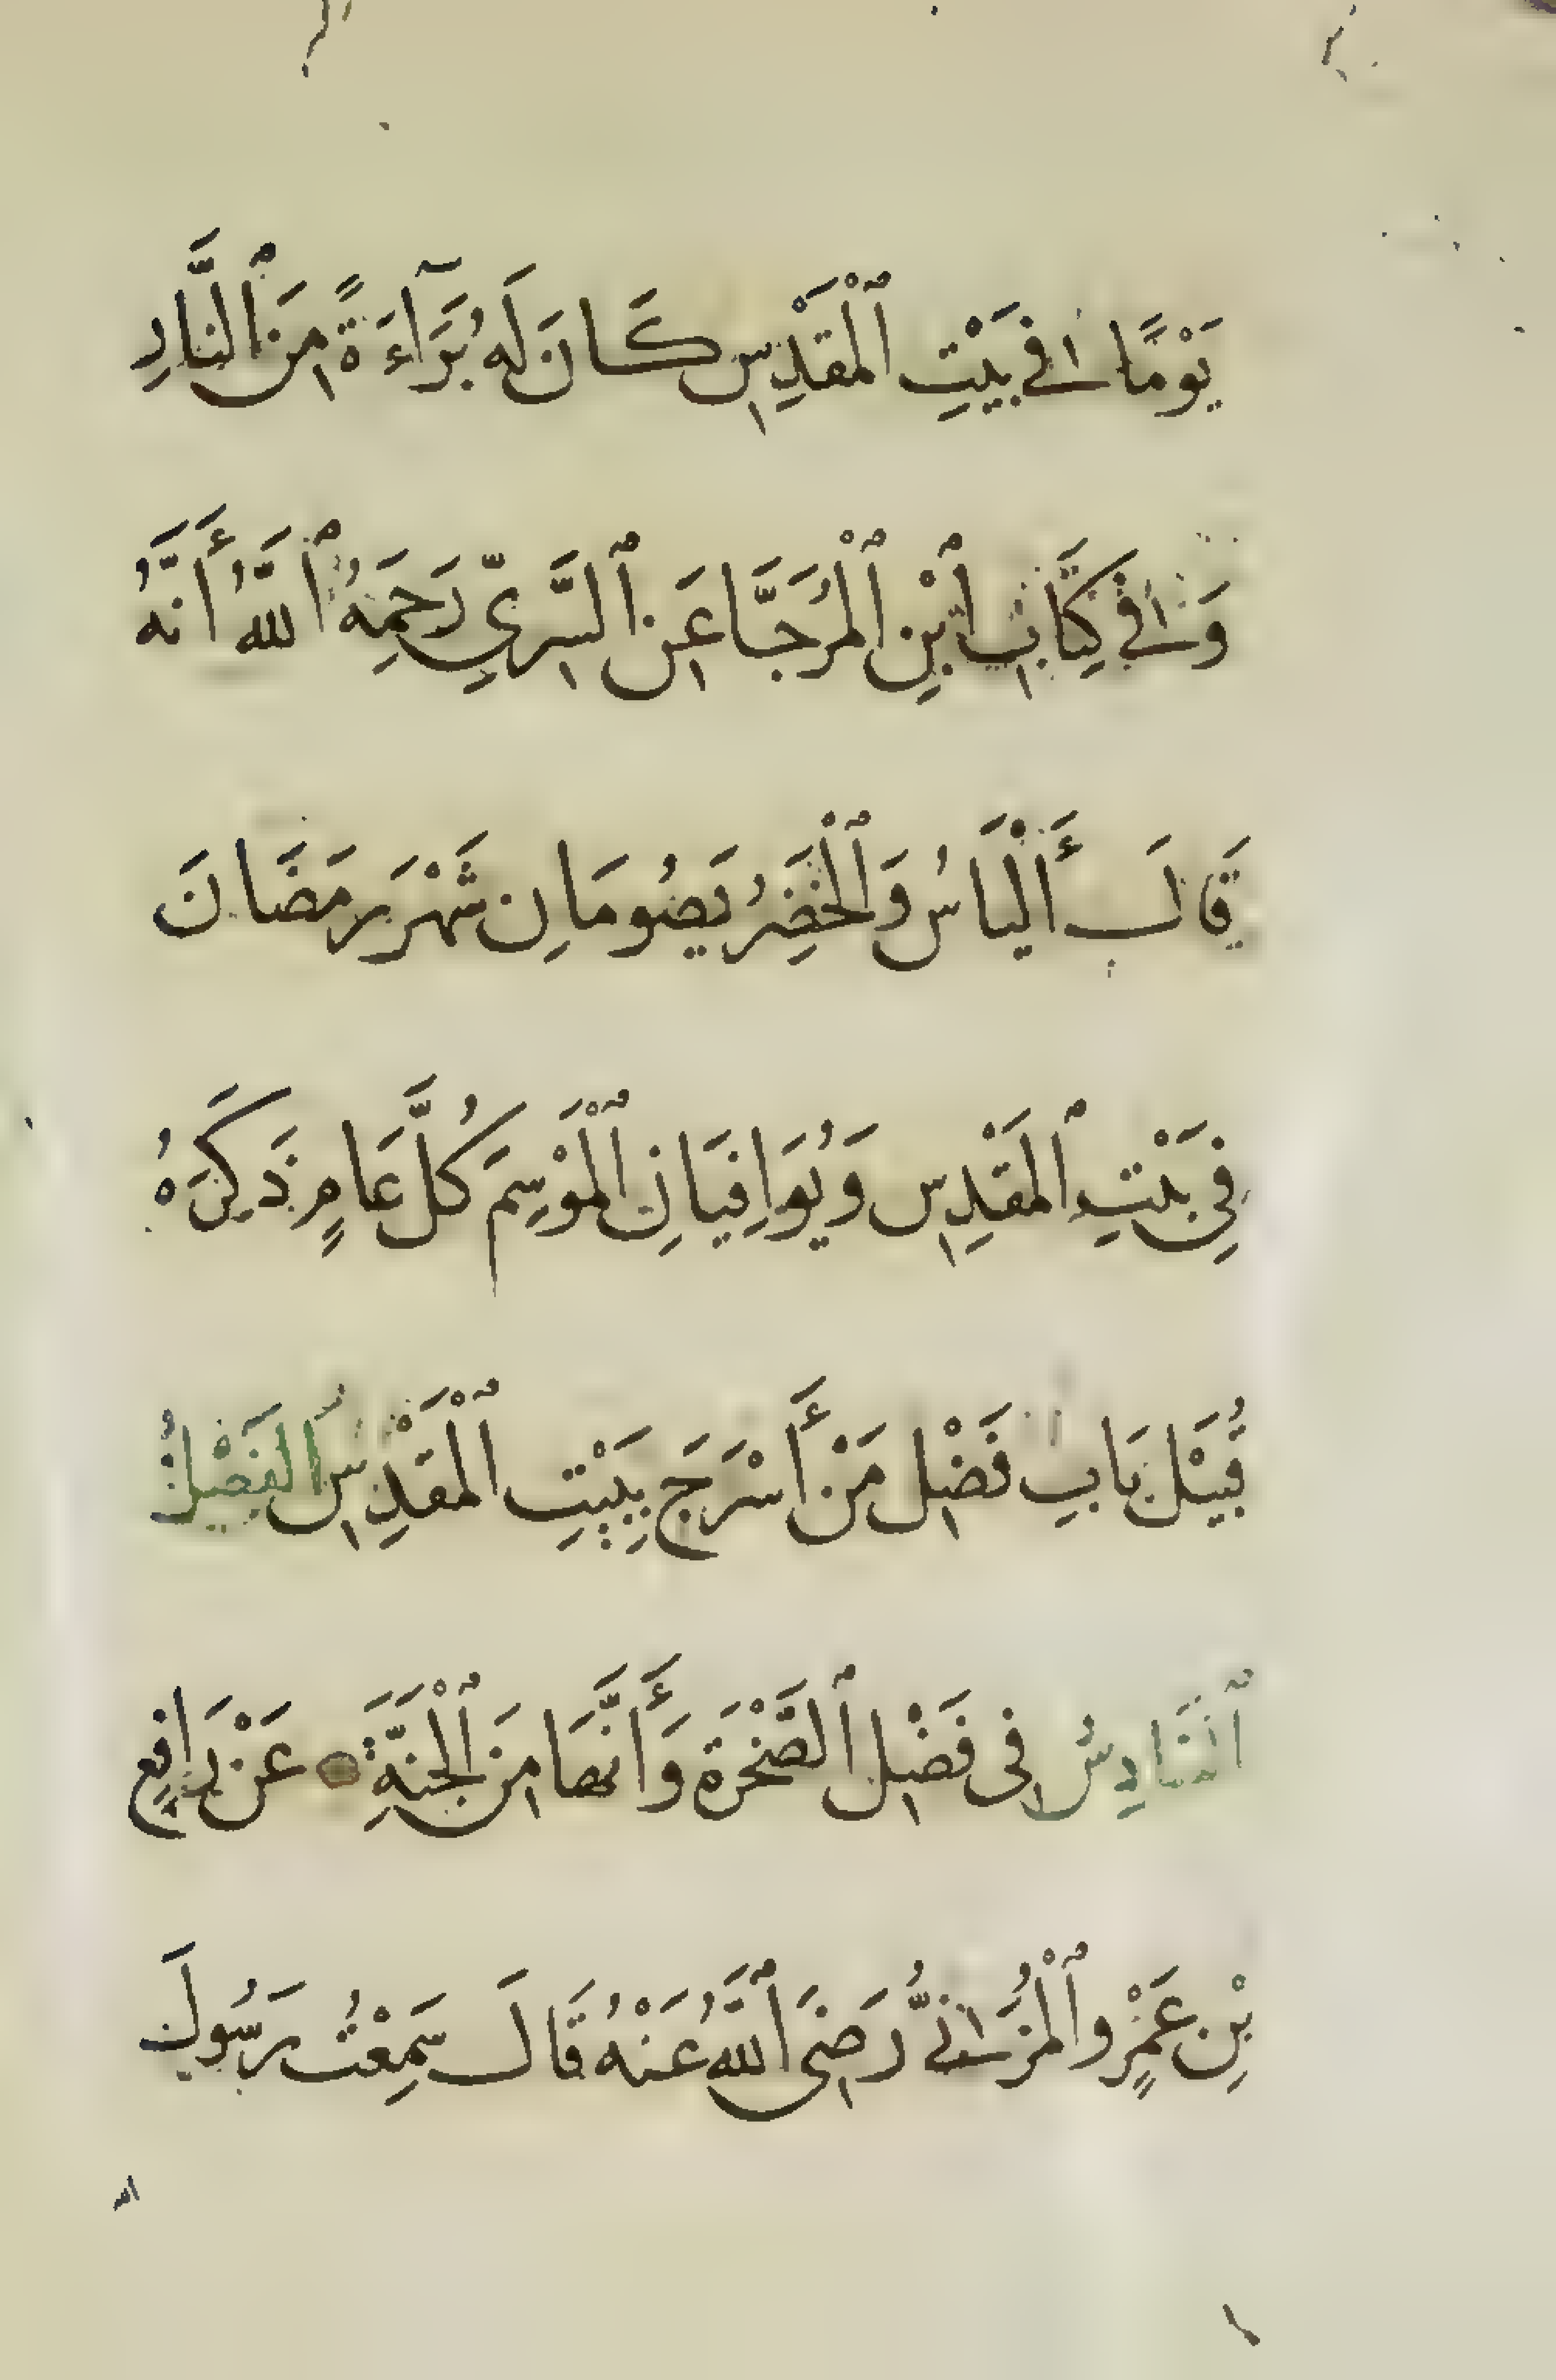 يَوْمًا فِي بَيْتِ ٱلْمَقْدِسِ كَانَ لَهُ بَرَآءَةً مِنَ ٱلنَّارِ
وَفِي كِتَابِ ٱبْنِ ٱلْمُرَجَّا عَنِ ٱلسَّرِيِّ رَحِمَهُ ٱللَّهُ أَنَّهُ
قَالَ أَلْيَاسُ وَٱلْخَضِرُ يَصُومَانِ شَهْرَ رَمَضَانَ
فِي بَيْتِ ٱلْمَقْدِسِ وَيُوَافِيَانِ ٱلْمَوْسِمَ كُلَّ عَامٍ ذَكَرَهُ
قُبَيْلَ بَابِ فَضْلِ مَنْ أَسْرَجَ بِبَيْتِ ٱلْمَقْدِسِ ٱلْفَصْلُ
ٱلسَّادِسُ فِي فَضْلِ ٱلصَّخْرَةِ وَأَنَّهَا مِنَ ٱلْجَنَّةِ عَنْ رَافِعِ
بْنِ عَمْرٍو ٱلْمُزَنِيِّ رَضِيَ ٱللَّهُ عَنْهُ قَالَ سَمِعْتُ رَسُولَ
الله